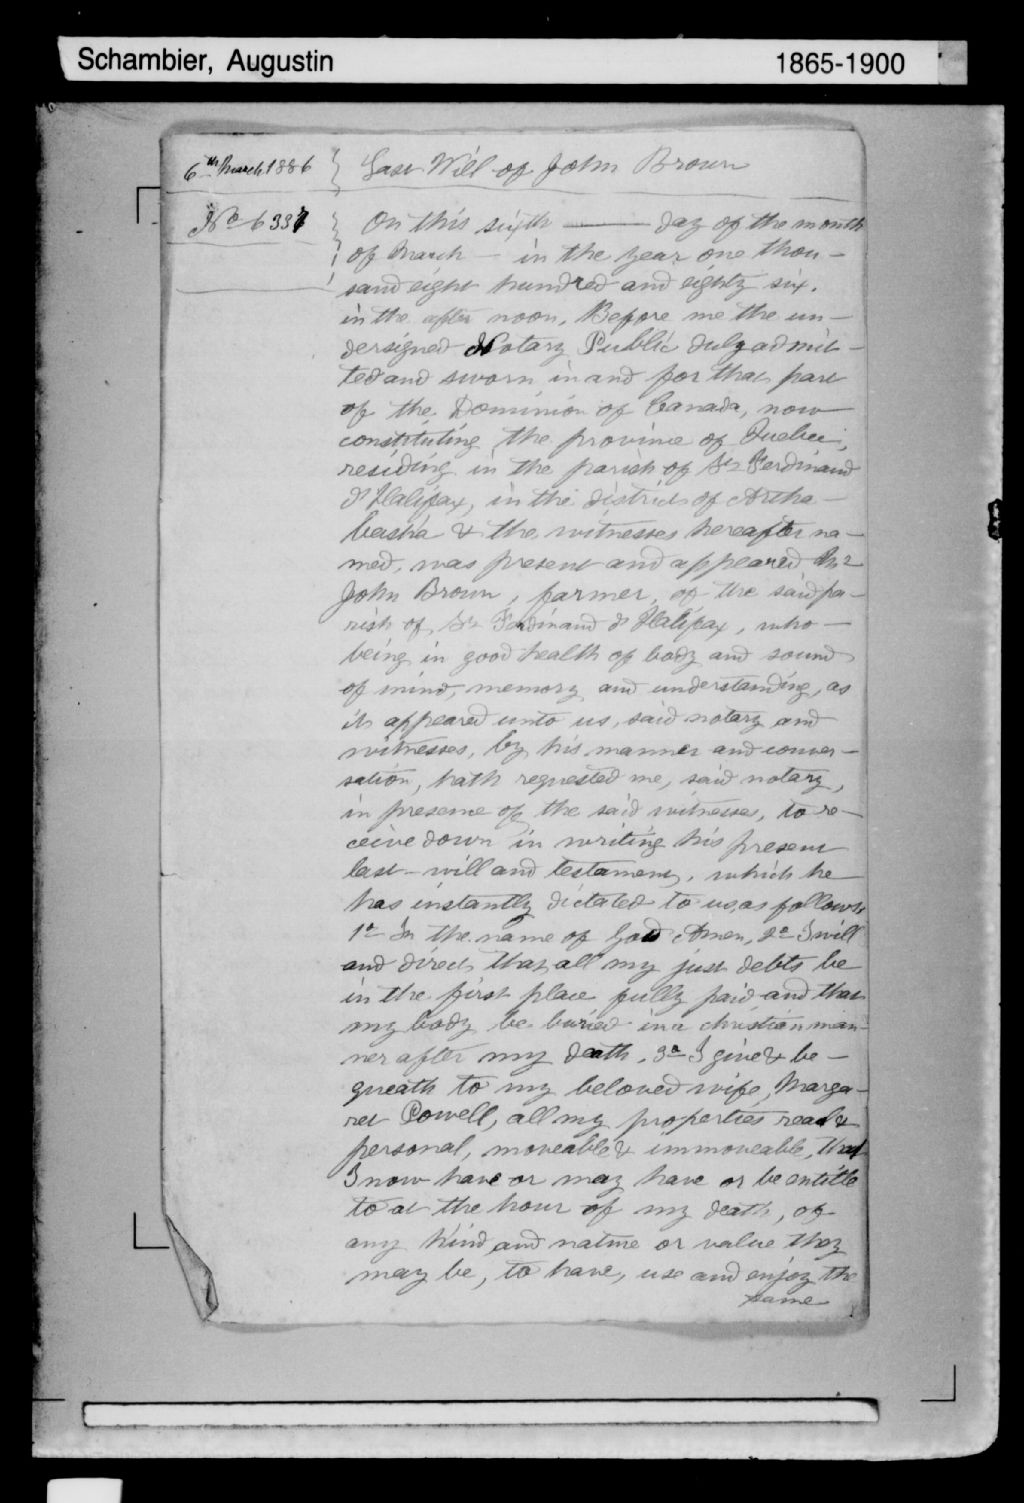 Schambier, Augustin 1865-1900
6th March 1886 } Last Will of John Brown
No 6337 } On this sixth — day of the month
of March — in the year one thou-
sand eight hundred and eighty six.
in the after noon, Before me the un-
dersigned Notary Public duly admit-
ted and sworn in and for that part
of the Dominion of Canada, now
constituting the province of Quebec,
residing in the parish of St Ferdinand
d'Halifax, in the district of Artha-
baska & the witnesses hereafter na-
med, was present and appeared Mr
John Brown, farmer, of the said pa-
rish of St Ferdinand d'Halifax, who —
being in good health of body and sound
of mind, memory and understanding, as
it appeared unto us, said notary and
witnesses, by his manner and conver-
sation, hath requested me, said notary,
in presence of the said witnesses, to re-
ceive down in writing his present
last will and testament, which he
has instantly dictated to us, as follows
1o In the name of God Amen, 2o I will
and direct that all my just debts be
in the first place fully paid and that
my body be buried in a christian man-
ner after my death. 3o I give & be-
queath to my beloved wife, Marga-
ret Powell, all my properties real &
personal, moveable & immoveable, that
I now have or may have or be entitle
to at the hour of my death, of
any kind and nature or value they
may be, to have, use and enjoy the
same